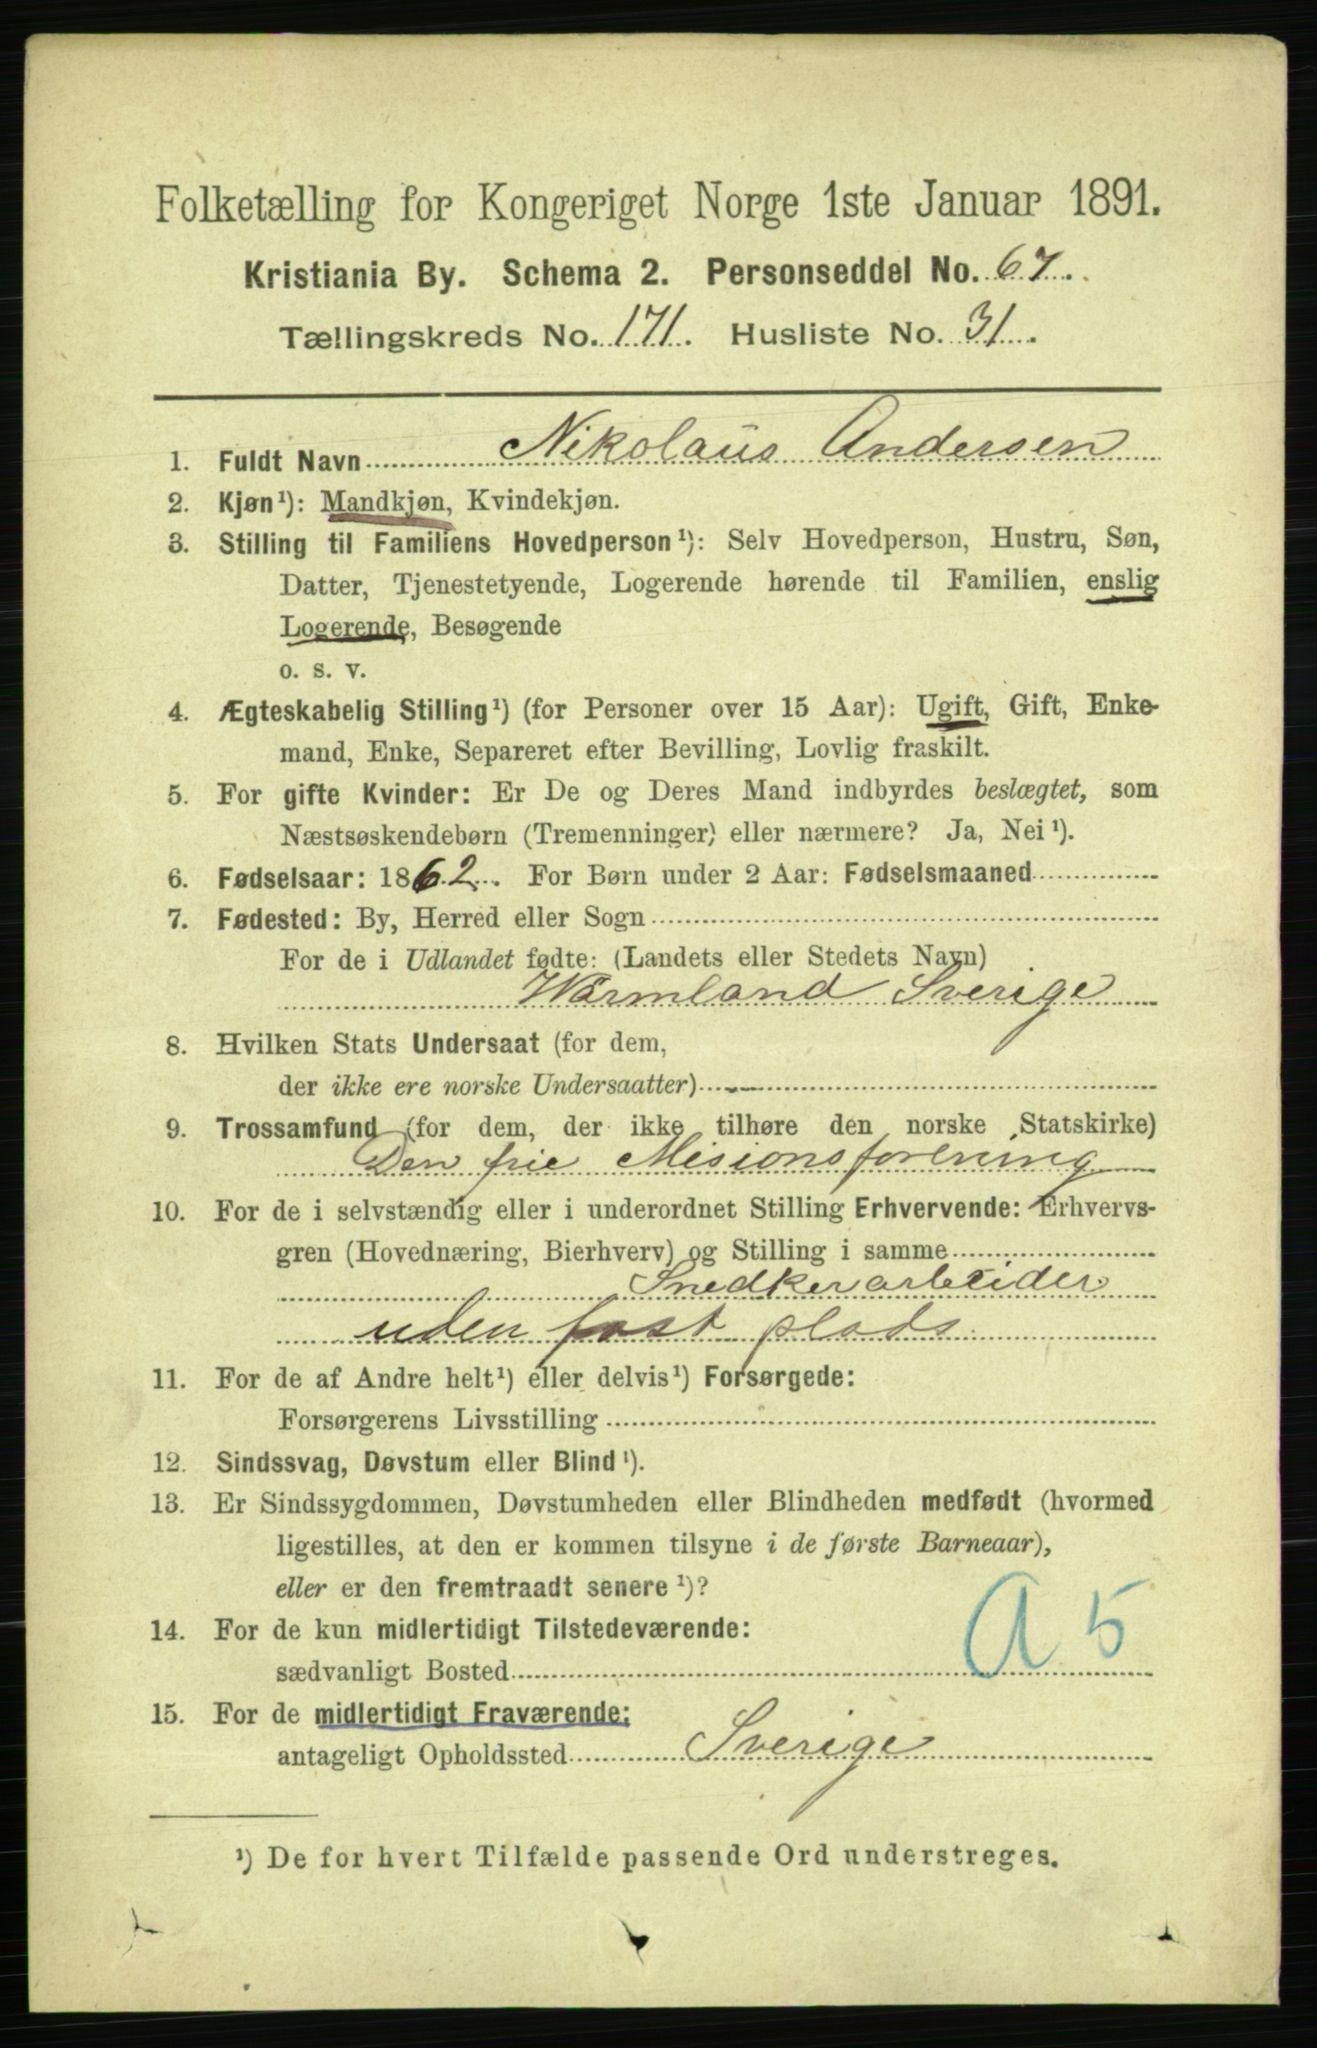 Folketælling for Kongeriget Norge 1ste Januar 1891.
Kristiania By. Schema 2. Personseddel No. 67.
Tællingskreds No. 171. Husliste No. 31.
1. Fuldt Navn Nikolaus Andersen
2. Kjøn¹): Mandkjøn, Kvindekjøn.
3. Stilling til Familiens Hovedperson¹): Selv Hovedperson, Hustru, Søn,
Datter, Tjenestetyende, Logerende hørende til Familien, enslig
Logerende, Besøgende
o. s. v.
4. Ægteskabelig Stilling¹) (for Personer over 15 Aar): Ugift, Gift, Enke-
mand, Enke, Separeret efter Bevilling, Lovlig fraskilt.
5. For gifte Kvinder: Er De og Deres Mand indbyrdes beslægtet, som
Næstsøskendebørn (Tremenninger) eller nærmere? Ja, Nei¹).
6. Fødselsaar: 1862. For Børn under 2 Aar: Fødselsmaaned
7. Fødested: By, Herred eller Sogn
For de i Udlandet fødte: (Landets eller Stedets Navn)
Wärmland Sverige
8. Hvilken Stats Undersaat (for dem,
der ikke ere norske Undersaatter)
9. Trossamfund (for dem, der ikke tilhøre den norske Statskirke)
Den frie Misionsforening
10. For de i selvstændig eller i underordnet Stilling Erhvervende: Erhvervs-
gren (Hovednæring, Bierhverv) og Stilling i samme
Snedkerarbeider
uden fast plads.
11. For de af Andre helt¹) eller delvis¹) Forsørgede:
Forsørgerens Livsstilling
12. Sindssvag, Døvstum eller Blind¹).
13. Er Sindssygdommen, Døvstumheden eller Blindheden medfødt (hvormed
ligestilles, at den er kommen tilsyne i de første Barneaar),
eller er den fremtraadt senere¹)?
A 5
14. For de kun midlertidigt Tilstedeværende:
sædvanligt Bosted
15. For de midlertidigt Fraværende:
antageligt Opholdssted Sverige
¹) De for hvert Tilfælde passende Ord understreges.